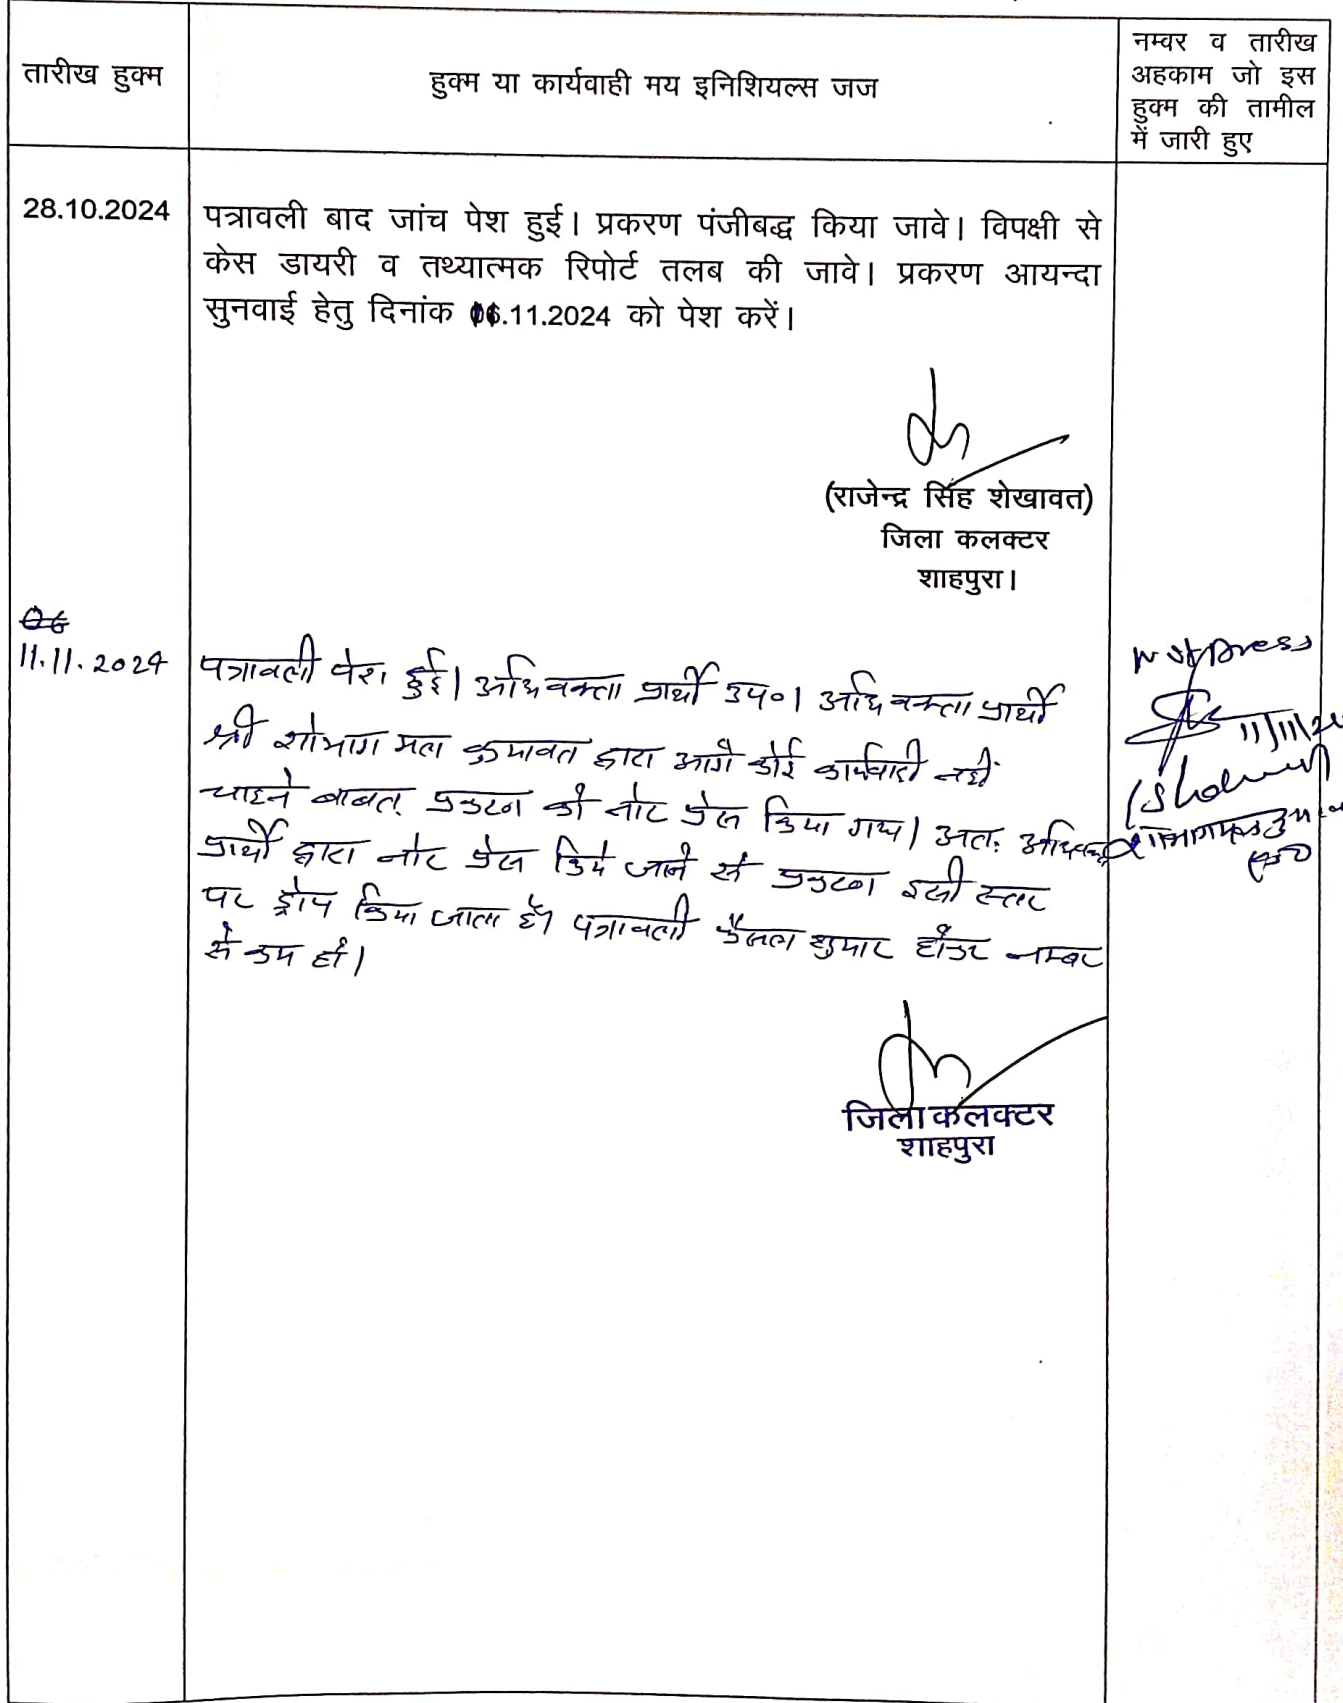 तारीख हुक्म
हुक्म या कार्यवाही मय इनिशियल्स जज
नम्वर व तारीख
अहकाम जो इस
हुक्म की तामील
में जारी हुए
28.10.2024
पत्रावली बाद जांच पेश हुई। प्रकरण पंजीबद्ध किया जावे। विपक्षी से
केस डायरी व तथ्यात्मक रिपोर्ट तलब की जावे। प्रकरण आयन्दा
सुनवाई हेतु दिनांक 11.11.2024 को पेश करें।
(राजेन्द्र सिंह शेखावत)
जिला कलक्टर
शाहपुरा।
06
11.11.2024
पत्रावली पेश हुई। अधिवक्ता प्रार्थी उप०। अधिवक्ता प्रार्थी
श्री शोभाग मल कुमावत द्वारा आगे कोई कार्यवाही नहीं
चाहने बाबत् प्रकरण को नोट प्रेस किया गया। अतः अधिवक्ता
प्रार्थी द्वारा नोट प्रेस किये जाने से प्रकरण इसी स्तर
पर ड्रोप किया जाता है। पत्रावली फैसल शुमार होकर नम्बर
से कम हो।
Not press
11/11/20
जिला कलक्टर
शाहपुरा